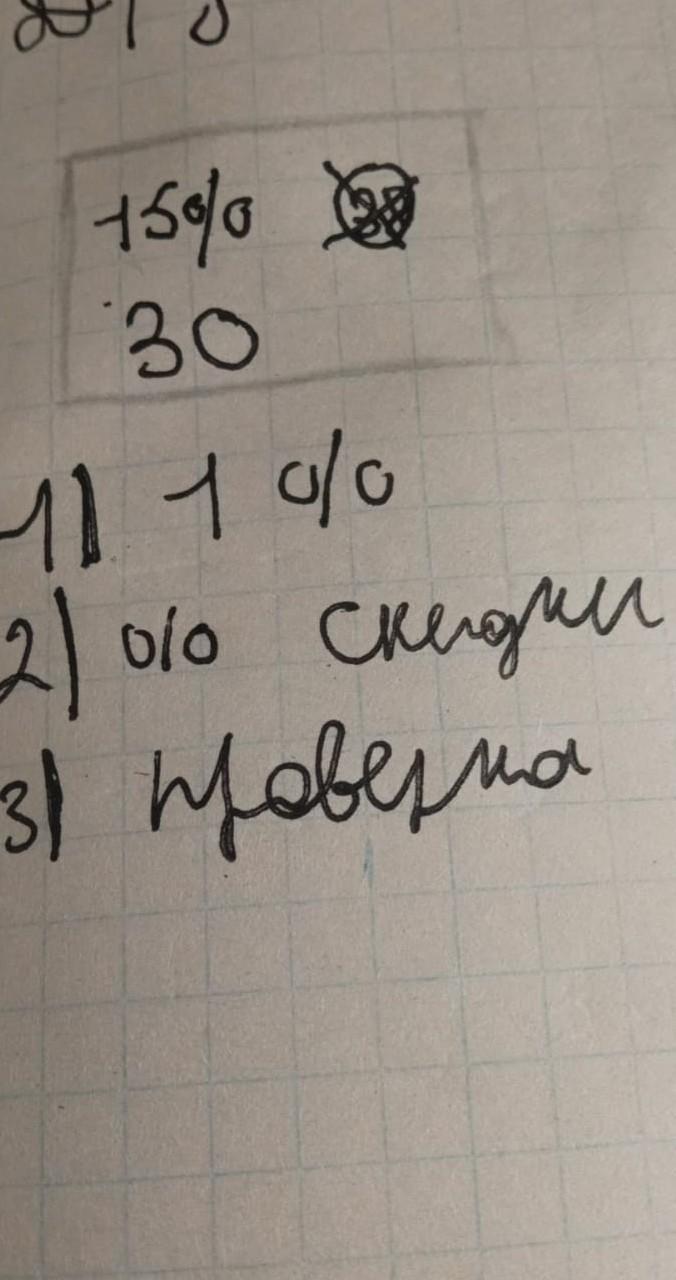 15%
30
1) 1 %
2) % скидки
3) проверка